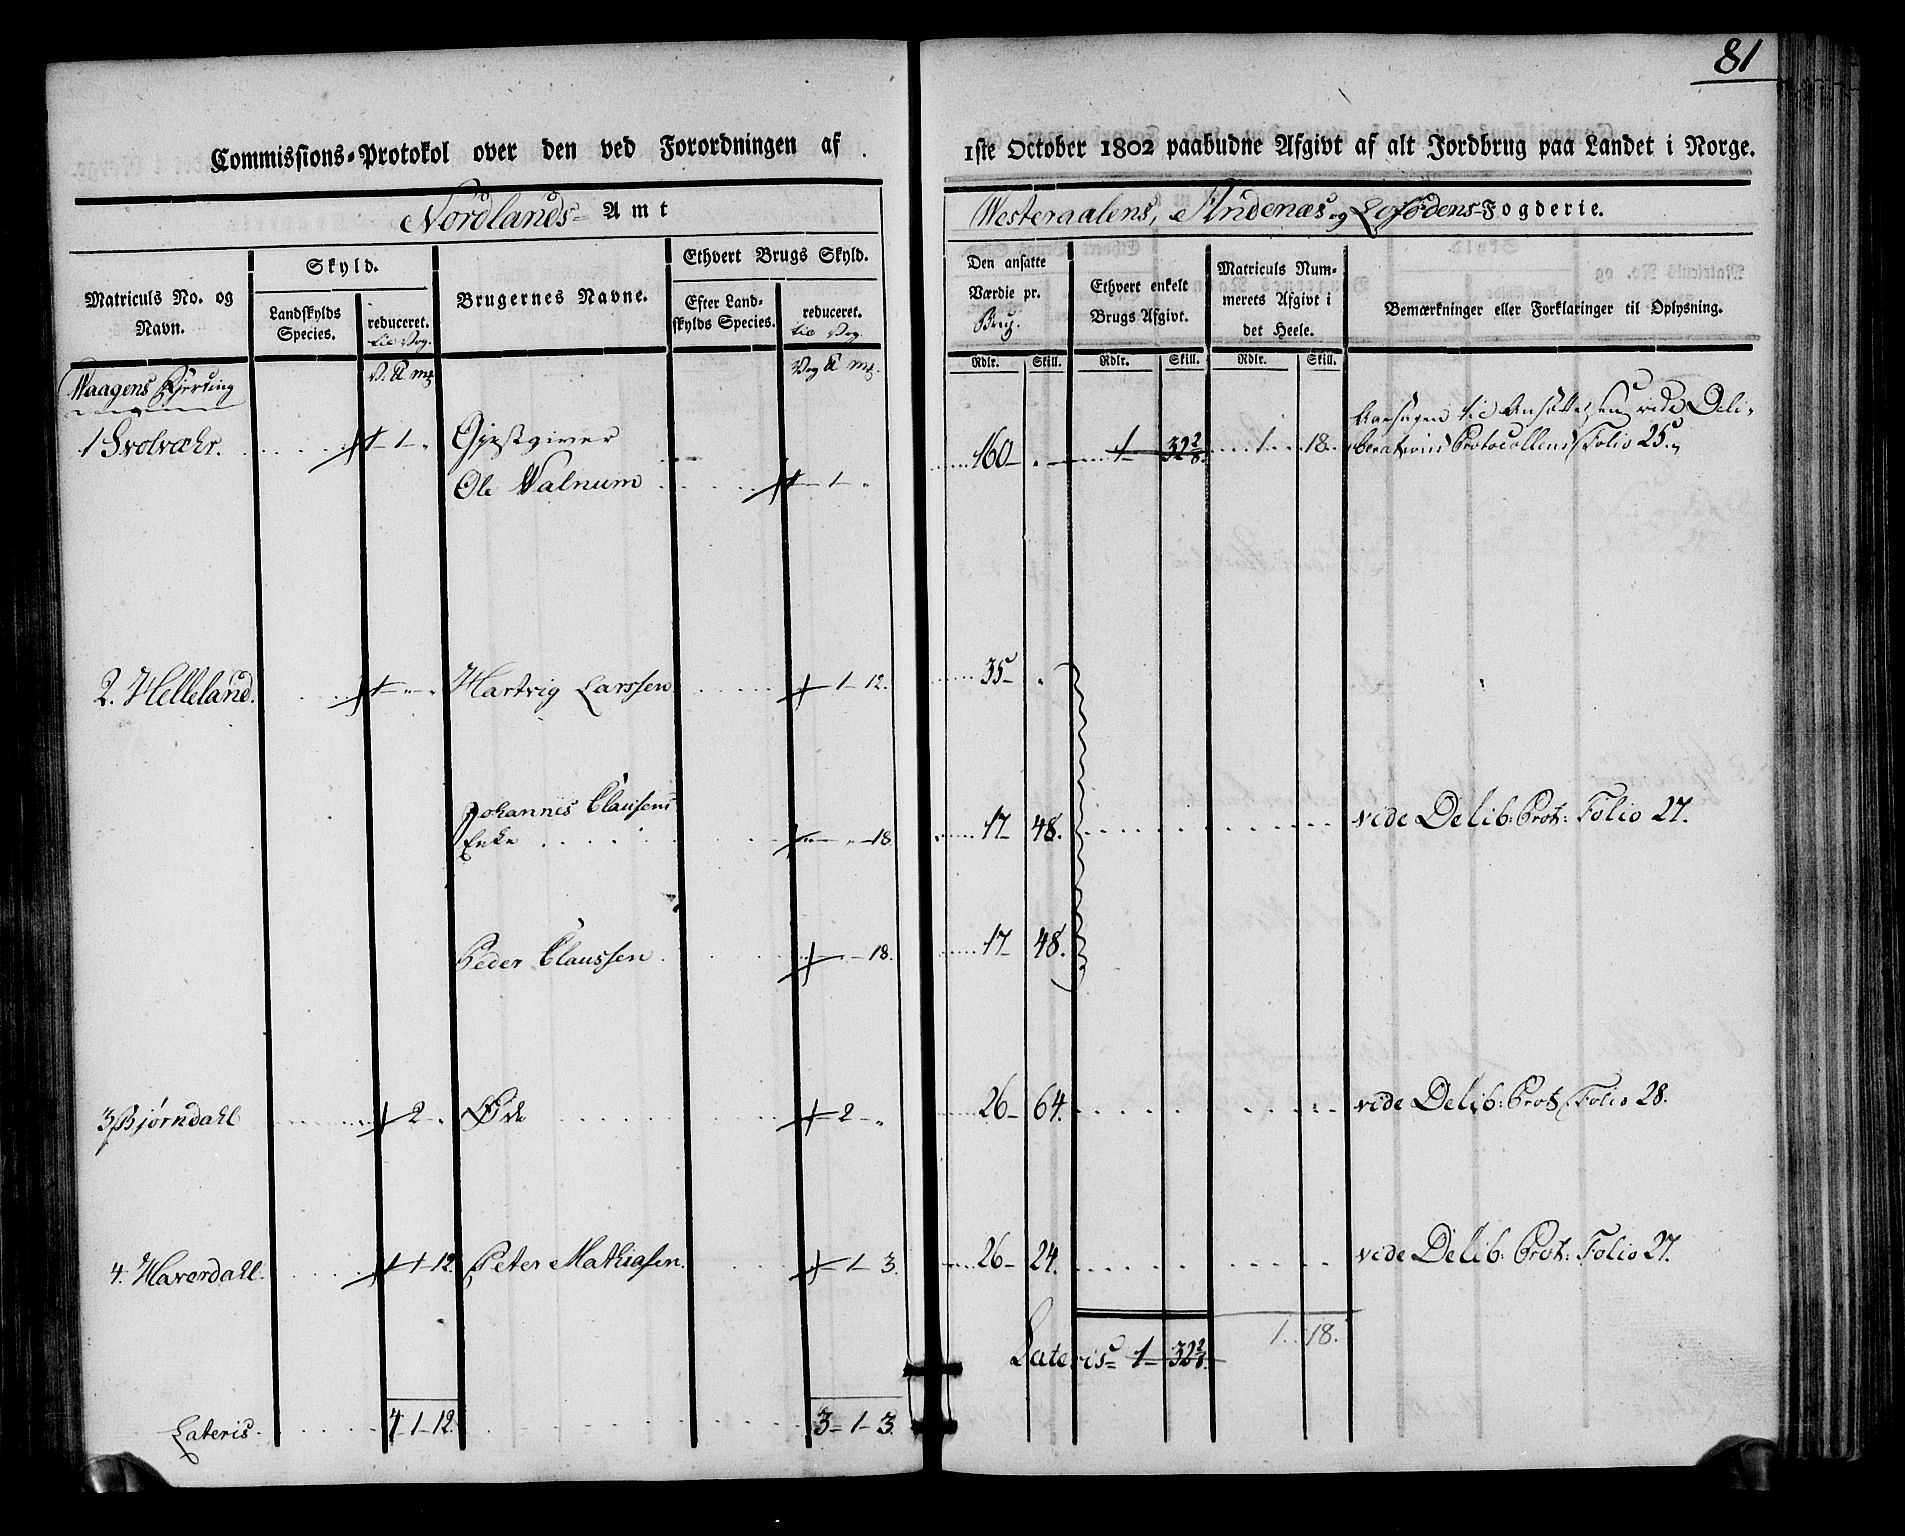 81
Commissions-Protokol over den ved Forordningen af
1ste October 1802 paabudne Afgivt af alt Jordbrug paa Landet i Norge.
Nordlands- Amt
Westeraalens, Andenæs og Lofodens-Fogderie.
Matriculs No. og Navn.
Skyld.
Landskylds Species.
reduceret.
til Vog.
Brugernes Navne.
Ethvert Brugs Skyld.
Efter Landskylds Species.
reduceret.
til Vog.
Den ansatte Værdie pr. Brug.
Ethvert enkelt Brugs Afgivt.
Matriculs Nummerets Afgivt i det Heele.
Bemærkninger eller Forklaringer til Oplysning.
Rdlr. Skill. Rdlr. Skill. Rdlr. Skill.
Waagens Fjerding
1 Svolvæhr. 1 Gjestgiver
Ole Walnum 1 160 1 32 2/8 1 18.
Aarsagen til Ansættelsen vide Deli-
berations Protocollens Folio 25.
2. Helleland. Hartvig Larssen 1 12. 35
Johannes Clausens
Enke 18 17 48. vide Delib: Prot: Folio 27.
Peder Claussen 18. 17 48.
3 Bjørndahl 2 Øde 2 26 64. vide Delib: Prot: Folio 28.
4. Haverdahl. 1 12. Peter Mathiasen. 1 3. 26 24. vide Delib: Prot: Folio 27.
Lateris 1 32 2/8. 1. 18.
Lateris 4 1 12. 3 1 3.